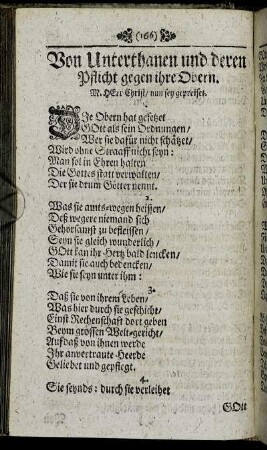 (166)
Von Unterthanen und deren
Pflicht gegen ihre Obern.
M. HErr Christ/ nun sey gepreiset.
DIe Obern hat gesetzet
GOtt als sein Ordnungen/
Wer sie dafür nicht schätzet/
Wird ohne Straaff nicht seyn:
Man sol in Ehren halten
Die Gottes statt verwalten/
Der sie drum Götter nennt.
2.
Was sie amts-wegen heissen/
Deß wegere niemand sich
Gehorsamst zu befleissen/
Seyn sie gleich wunderlich/
GOtt kan ihr Hertz bald lencken/
Damit sie auch bedencken/
Wie sie seyn unter ihm:
3.
Daß sie von ihrem Leben/
Was hier durch sie geschicht/
Einst Rechenschaft dort geben
Beym grossen Welt-gericht/
Aufdaß von ihnen werde
Ihr anvertraute Heerde
Geliebet und gepflegt.
4.
Sie seynds: durch sie verleihet
GOtt